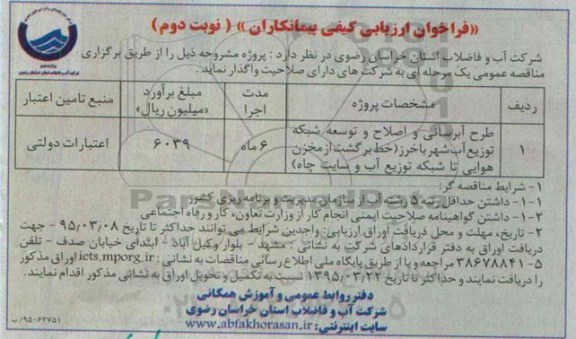 «فراخوان ارزیابی کیفی پیمانکاران» ( نوبت دوم )
شرکت آب و فاضلاب استان خراسان رضوی در نظر دارد : پروژه مشروحه ذیل را از طریق برگزاری
مناقصه عمومی یک مرحله ای به شرکت های دارای صلاحیت واگذار نماید .
ردیف مشخصات پروژه مدت اجرا مبلغ برآورد «میلیون ریال» منبع تامین اعتبار
۱ طرح آبرسانی و اصلاح و توسعه شبکه توزیع آب شهر باخرز (خط برگشت از مخزن هوایی تا شبکه توزیع آب و سایت چاه) ۶ ماه ۶۰۳۹ اعتبارات دولتی
۱- شرایط مناقصه گر:
۱-۱- داشتن حداقل رتبه ۵ رشته آب از سازمان مدیریت و برنامه ریزی کشور
۱-۲- داشتن گواهینامه صلاحیت ایمنی انجام کار از وزارت تعاون، کار و رفاه اجتماعی
۲- تاریخ، مهلت و محل دریافت اوراق ارزیابی: واجدین شرایط می توانند حداکثر تا تاریخ ۹۵،۰۳،۰۸ - جهت
دریافت اوراق به دفتر قراردادهای شرکت به نشانی : مشهد - بلوار وکیل آباد - ابتدای خیابان صدف - تلفن
۵- ۳۸۶۷۸۸۴۱ مراجعه و یا از طریق پایگاه ملی اطلاع رسانی مناقصات به نشانی : iets.mporg.ir اوراق مذکور
را دریافت نمایند و حداکثر تا تاریخ ۱۳۹۵،۰۳،۲۲ نسبت به تکمیل و تحویل اوراق به نشانی مذکور اقدام نمایند.
دفتر روابط عمومی و آموزش همگانی
شرکت آب و فاضلاب استان خراسان رضوی
سایت اینترنتی: www.abfakhorasan.ir
۹۵۰۶۲۷۵۱/ب